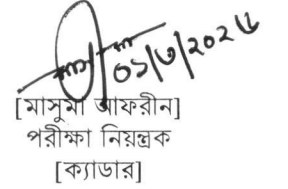 ০১/৩/২০২৫
[মাসুমা আফরীন]
পরীক্ষা নিয়ন্ত্রক
[ক্যাডার]